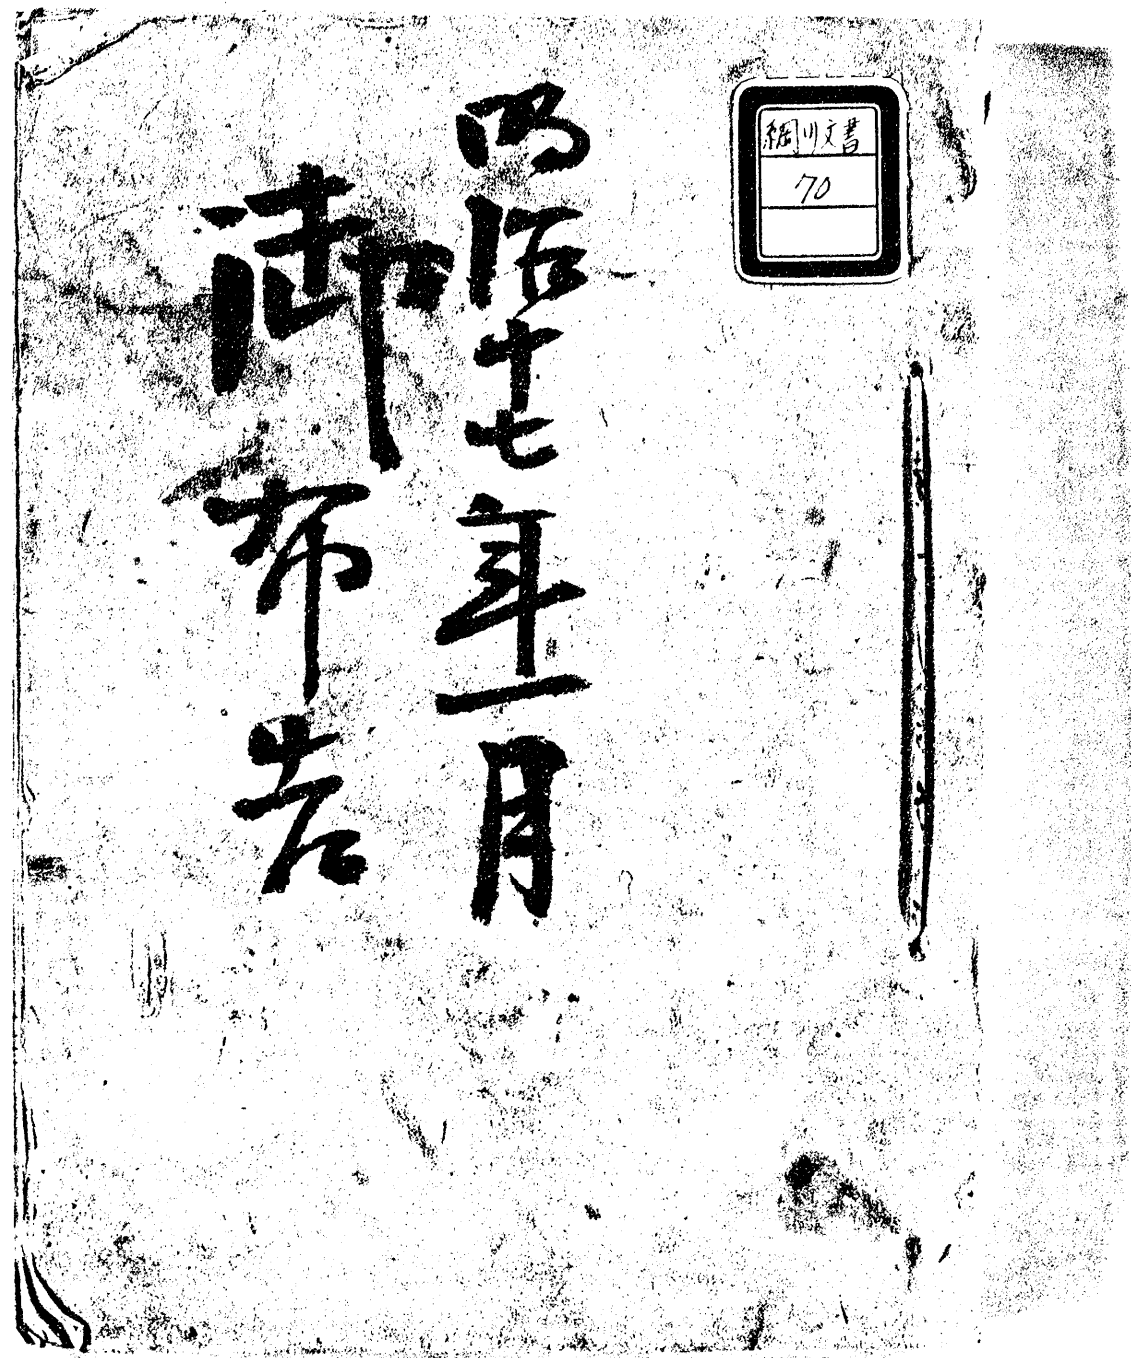 綱川文書
70
明治十七年一月
御布告